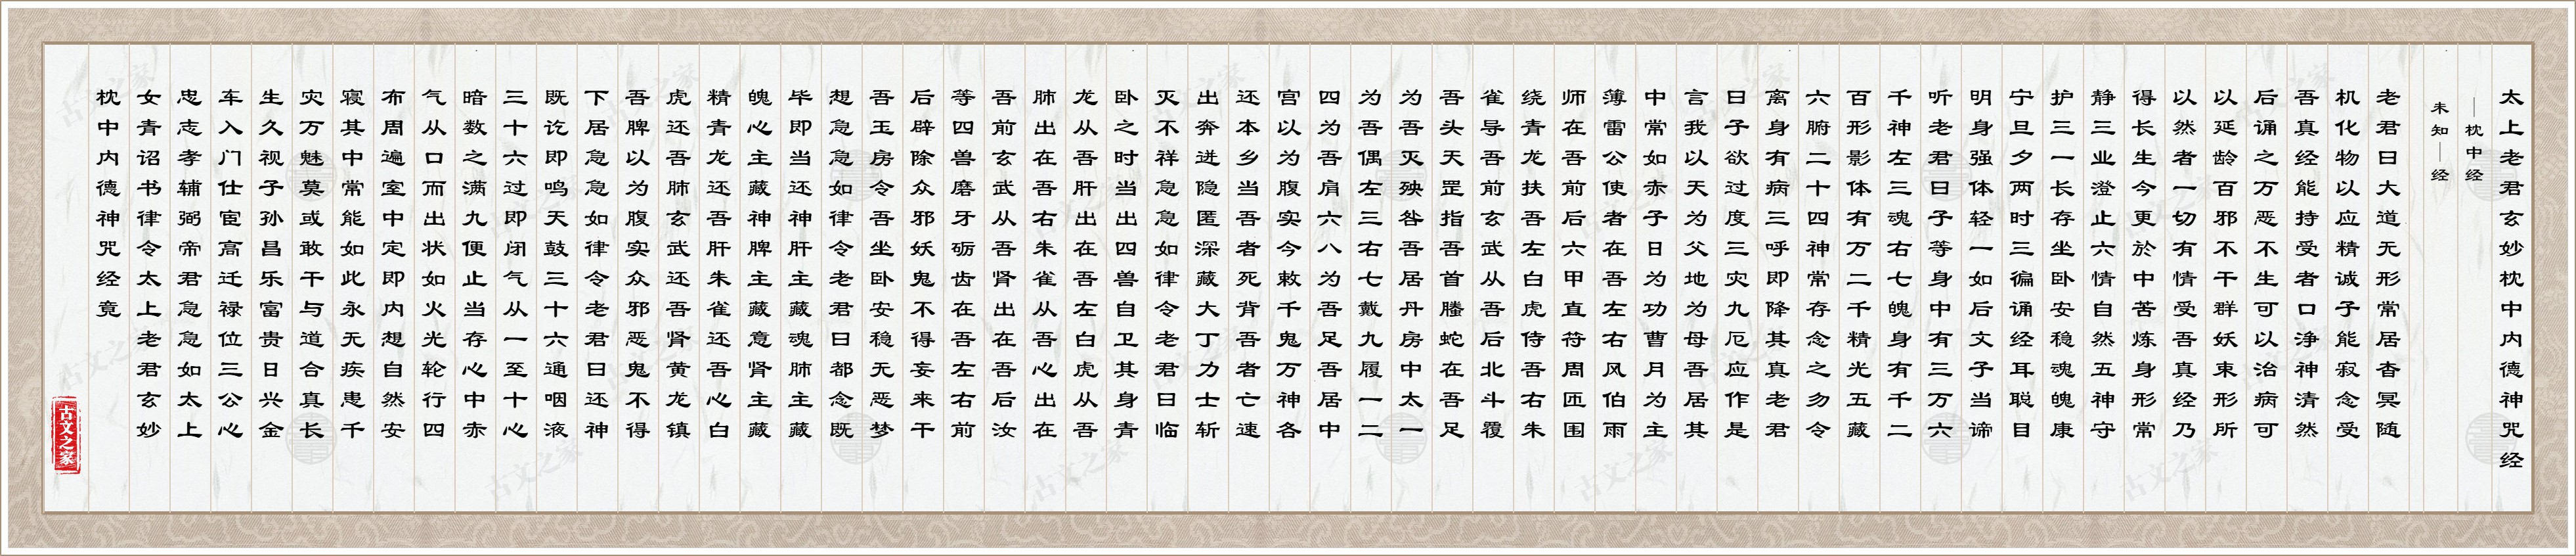 太上老君玄妙枕中内德神咒经
—枕中经
未知—经
老君曰大道无形常居杳冥随
机化物以应精诚子能寂念受
吾真经能持受者口净神清然
后诵之万恶不生可以治病可
以延龄百邪不干群妖束形所
以然者一切有情受吾真经乃
得长生今更於中苦炼身形常
静三业澄止六情自然五神守
护三一长存坐卧安稳魂魄康
宁旦夕两时三徧诵经耳聪目
明身强体轻一如后文子当谛
听老君曰子等身中有三万六
千神左三魂右七魄身有千二
百形影体有万二千精光五藏
六腑二十四神常存念之勿令
离身有病三呼即降其真老君
曰子欲过度三灾九厄应作是
言我以天为父地为母吾居其
中常如赤子日为功曹月为主
薄雷公使者在吾左右风伯雨
师在吾前后六甲直符周匝围
绕青龙扶吾左白虎侍吾右朱
雀导吾前玄武从吾后北斗覆
吾头天罡指吾首螣蛇在吾足
为吾灭殃咎吾居丹房中太一
为吾偶左三右七戴九履一二
四为吾肩六八为吾足吾居中
宫以为腹实今敕千鬼万神各
还本乡当吾者死背吾者亡速
出奔迸隐匿深藏大丁力士斩
灭不祥急急如律令老君曰临
卧之时当出四兽自卫其身青
龙从吾肝出在吾左白虎从吾
肺出在吾右朱雀从吾心出在
吾前玄武从吾肾出在吾后汝
等四兽磨牙砺齿在吾左右前
后辟除众邪妖鬼不得妄来干
吾玉房令吾坐卧安稳无恶梦
想急急如律令老君曰都念既
毕即当还神肝主藏魂肺主藏
魄心主藏神脾主藏意肾主藏
精青龙还吾肝朱雀还吾心白
虎还吾肺玄武还吾肾黄龙镇
吾脾以为腹实众邪恶鬼不得
下居急急如律令老君曰还神
既讫即鸣天鼓三十六通咽液
三十六过即闭气从一至十心
暗数之满九便止当存心中赤
气从口而出状如火光轮行四
布周遍室中定即内想自然安
寝其中常能如此永无疾患千
灾万魅莫或敢干与道合真长
生久视子孙昌乐富贵日兴金
车入门仕宦高迁禄位三公心
忠志孝辅弼帝君急急如太上
女青诏书律令太上老君玄妙
枕中内德神咒经竟
古文之家